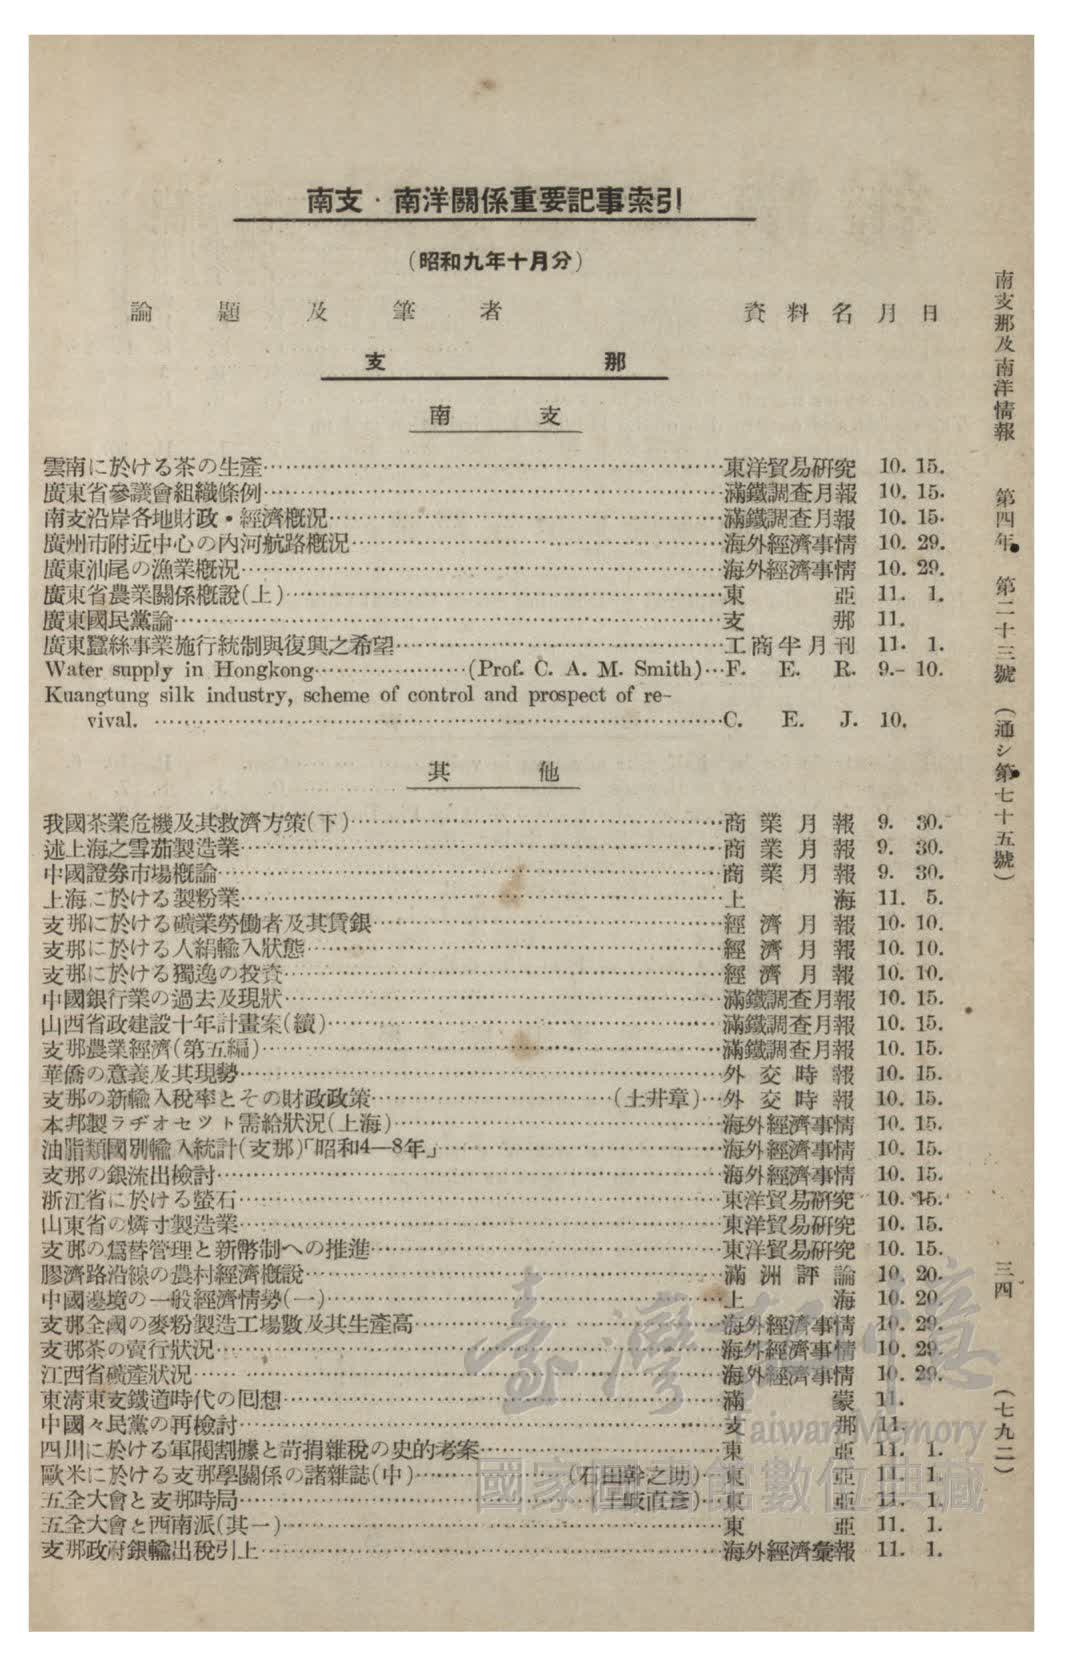 南支・南洋關係重要記事索引
(昭和九年十月分)
論題及筆者 資料名 月日
支那
南支
雲南に於ける茶の生產……東洋貿易硏究 10. 15.
廣東省參議會組織條例……滿鐵調查月報 10. 15.
南支沿岸各地財政・經濟槪況……滿鐵調查月報 10. 15.
廣州市附近中心の內河航路槪況……海外經濟事情 10. 29.
廣東汕尾の漁業槪況……海外經濟事情 10. 29.
廣東省農業關係槪說(上)……東亞 11. 1.
廣東國民黨論……支那 11.
廣東蠶絲事業施行統制與復興之希望……工商半月刊 11. 1.
Water supply in Hongkong……(Prof. C. A. M. Smith)…F. E. R. 9.-10.
Kuangtung silk industry, scheme of control and prospect of re-
vival. ……C. E. J. 10.
其他
我國茶業危機及其救濟方策(下)……商業月報 9. 30.
述上海之雪茄製造業……商業月報 9. 30.
中國證券市場槪論……商業月報 9. 30.
上海に於ける製粉業……上海 11. 5.
支那に於ける礦業勞働者及其賃銀……經濟月報 10. 10.
支那に於ける人絹輸入狀態……經濟月報 10. 10.
支那に於ける獨逸の投資……經濟月報 10. 10.
中國銀行業の過去及現狀……滿鐵調查月報 10. 15.
山西省政建設十年計畫案(續)……滿鐵調查月報 10. 15.
支那農業經濟(第五編)……滿鐵調查月報 10. 15.
華僑の意義及其現勢……外交時報 10. 15.
支那の新輸入稅率とその財政政策……(土井章)…外交時報 10. 15.
本邦製ラヂオセツト需給狀況(上海)……海外經濟事情 10. 15.
油脂類國別輸入統計(支那)「昭和4—8年」……海外經濟事情 10. 15.
支那の銀流出檢討……海外經濟事情 10. 15.
浙江省に於ける螢石……東洋貿易硏究 10. 15.
山東省の燐寸製造業……東洋貿易硏究 10. 15.
支那の爲替管理と新幣制への推進……東洋貿易硏究 10. 15.
膠濟路沿線の農村經濟槪說……滿洲評論 10. 20.
中國邊境の一般經濟情勢(一)……上海 10. 20.
支那全國の麥粉製造工場數及其生產高……海外經濟事情 10. 29.
支那茶の賣行狀況……海外經濟事情 10. 29.
江西省礦產狀況……海外經濟事情 10. 29.
東淸東支鐵道時代の囘想……滿蒙 11.
中國々民黨の再檢討……支那 11
四川に於ける軍閥割據と苛捐雜稅の史的考案……東亞 11. 1.
歐米に於ける支那學關係の諸雜誌(中)……(石田幹之助)…東亞 11. 1.
五全大會と支那時局……(土岐直彥)…東亞 11. 1.
五全大會と西南派(其一)……東亞 11. 1.
支那政府銀輸出稅引上……海外經濟彙報 11. 1.
南支那及南洋情報 第四年 第二十三號 (通シ第七十五號) 三四 (七九二)
臺灣記憶
Taiwan Memory
國家圖書館數位典藏